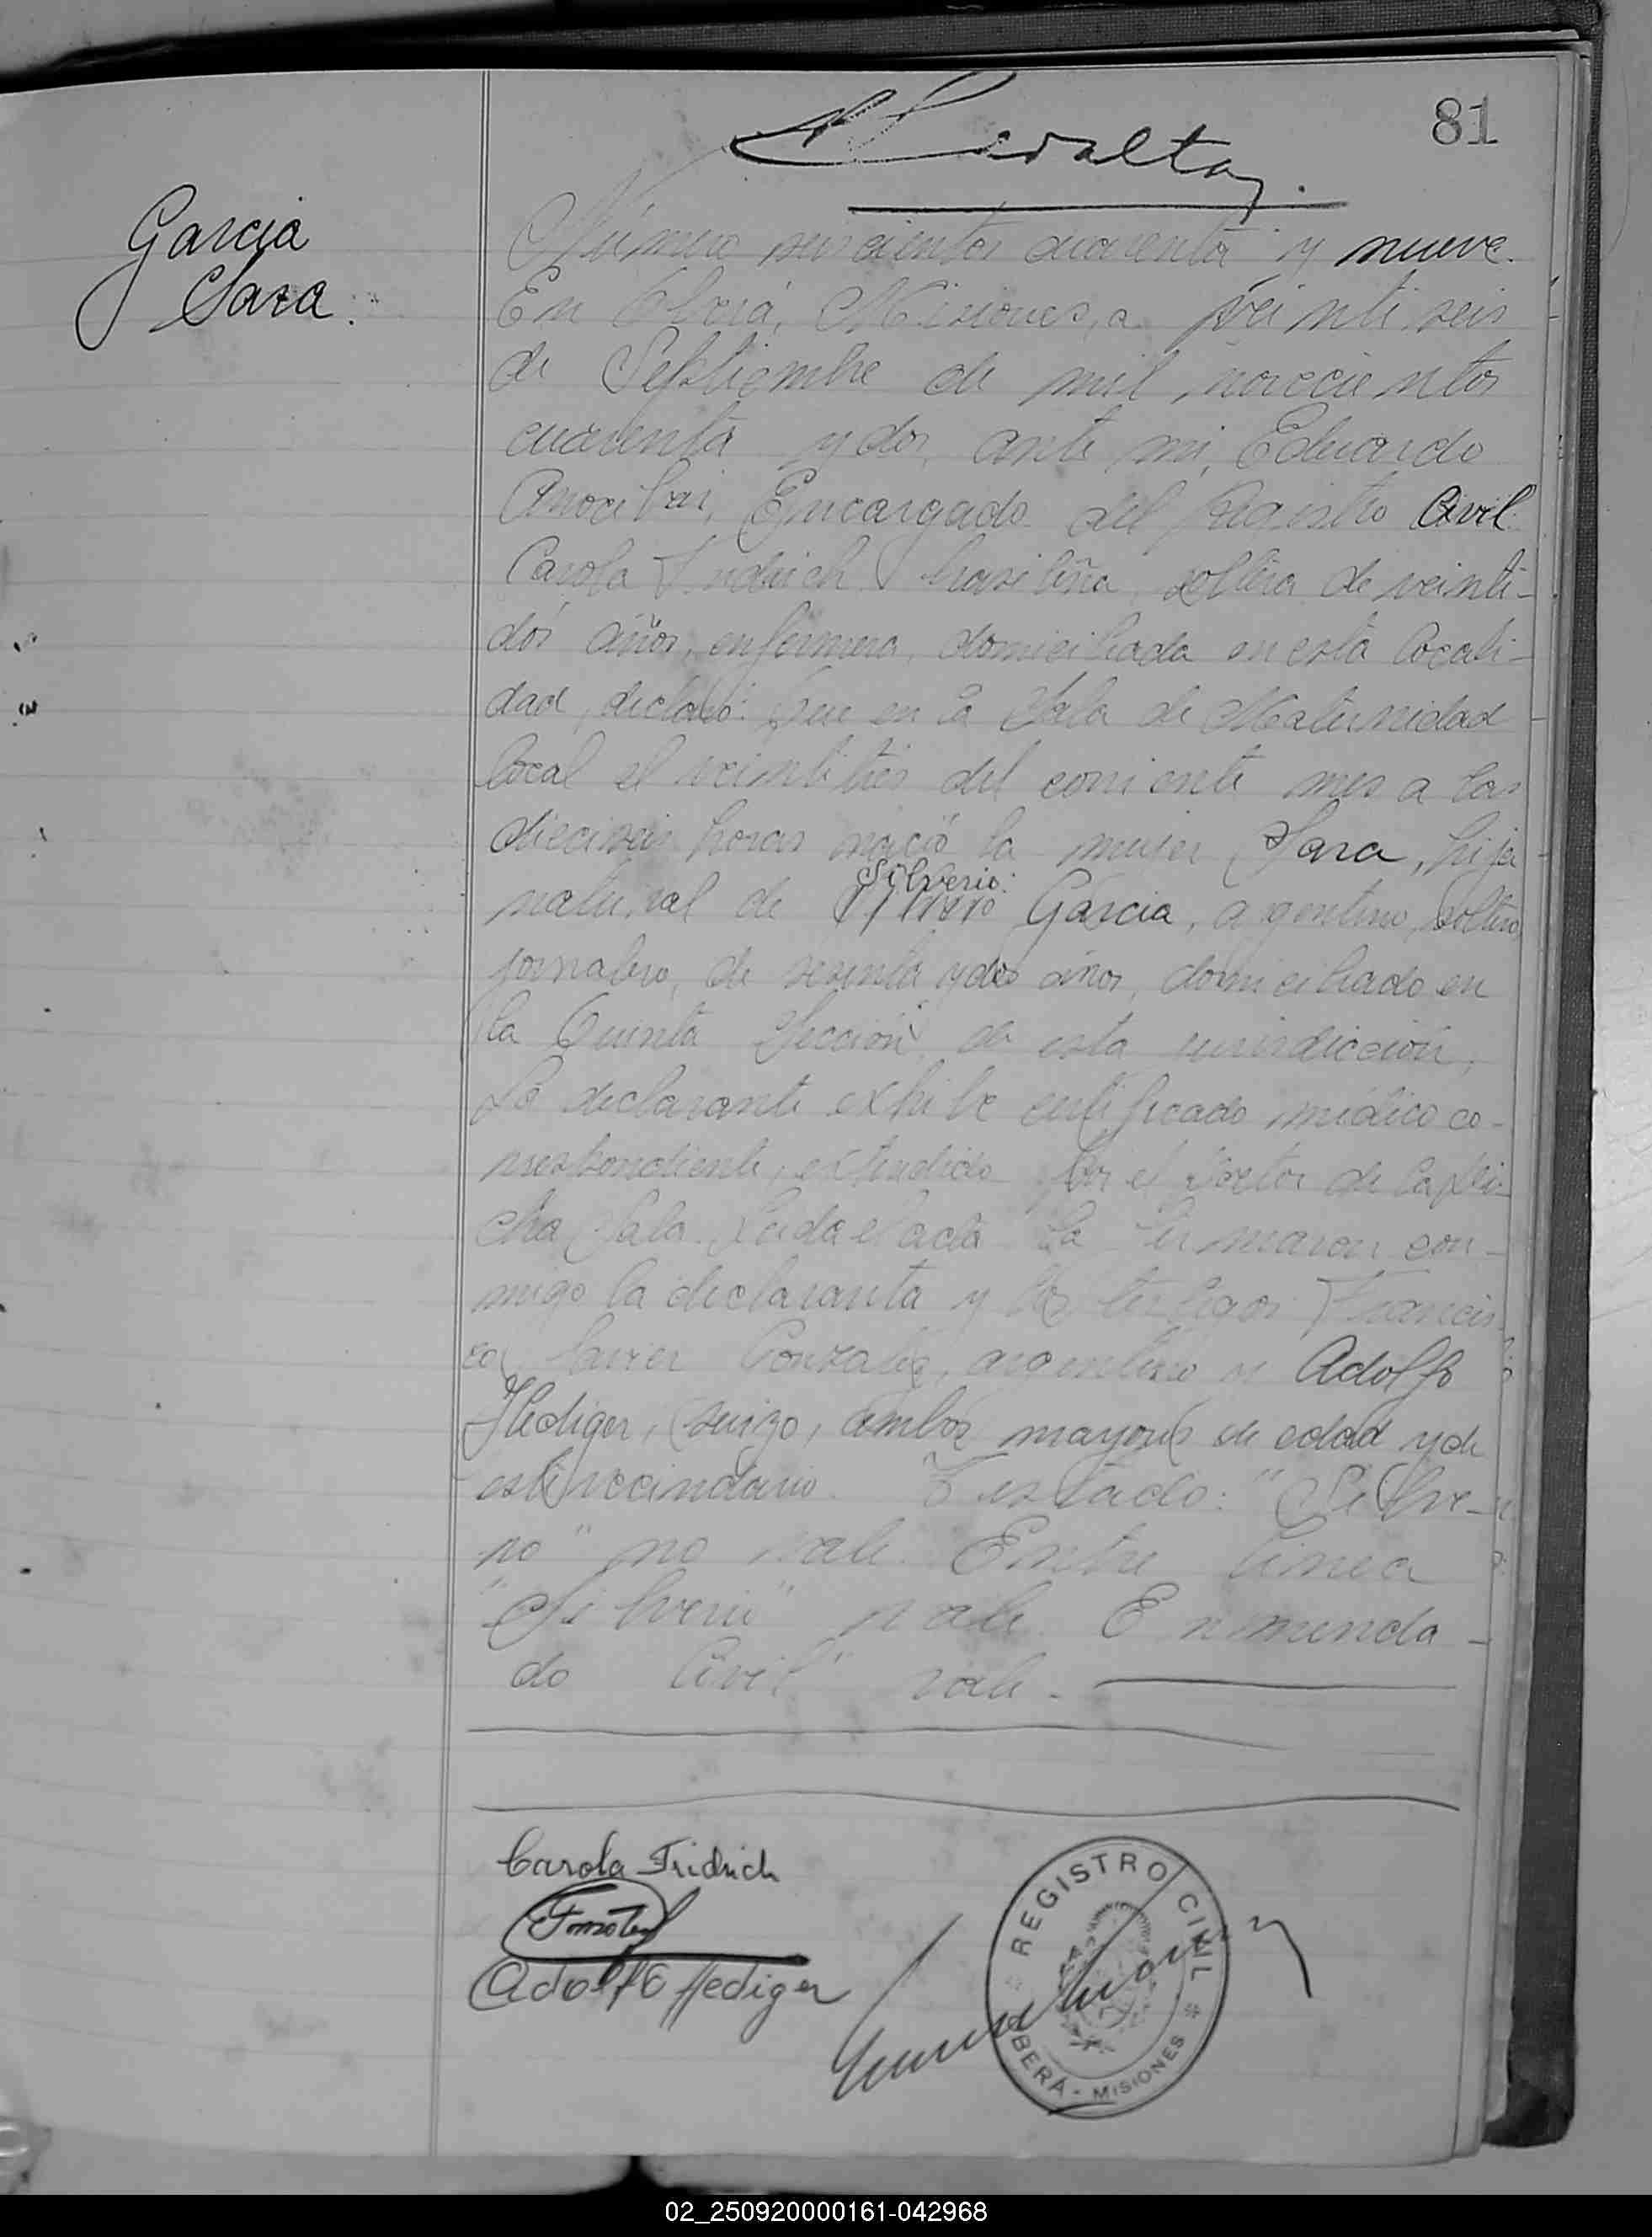 81
Peralta
Garcia
Sara.
Número seiscientos cuarenta y nueve.
En Oberá, Misiones, a veinti seis
de Septiembre de mil novecientos
cuarenta y dos, ante mi, Eduardo
Encargado del Registro Civil
Carola Fridrich brasileña, soltera de veinti-
dós años, enfermera, domiciliada en esta locali-
dad, declaró: Que en la Sala de Maternidad
local el veintitrés del corriente mes a las
dieciseis horas nació la mujer Sara, hija
Silverio
natural de Garcia, argentino, soltero,
jornalero, de sesenta y dos años, domiciliado en
la Quinta Sección de esta jurisdicción,
La declarante exhibe certificado médico co-
rrespondiente, extendido por el Doctor de la di-
cha Sala. Leida el acta la firmaron con-
migo la declaranta y los testigos Francis-
co Javier Gonzalez, argentino y Adolfo
Hediger, suizo, ambos mayores de edad y de
este vecindario. Testado: "Silve-
no" no vale. Entre linea
"Silverio" vale. Enmenda-
do "Civil" vale.-
Carola Fridrich
Adolfo Hediger
REGISTRO CIVIL
OBERÁ - MISIONES
02_250920000161-042968